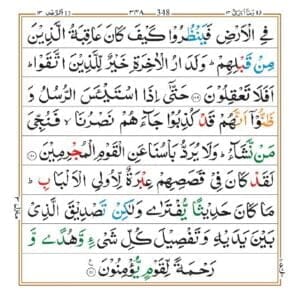 348 ٣٣٨
فِي الْاَرْضِ فَيَنْظُرُوْا كَيْفَ كَانَ عَاقِبَةُ الَّذِيْنَ
مِنْ قَبْلِهِمْ ؕ وَلَدَارُ الْاٰخِرَةِ خَيْرٌ لِّلَّذِيْنَ اتَّقَوْا ؕ
اَفَلَا تَعْقِلُوْنَ ۝ حَتّٰۤى اِذَا اسْتَيْـَٔسَ الرُّسُلُ وَ
ظَنُّوْۤا اَنَّهُمْ قَدْ كُذِبُوْا جَآءَهُمْ نَصْرُنَا ۙ فَنُجِّيَ
مَنْ نَّشَآءُ ؕ وَلَا يُرَدُّ بَاْسُنَا عَنِ الْقَوْمِ الْمُجْرِمِيْنَ ۝
لَقَدْ كَانَ فِيْ قَصَصِهِمْ عِبْرَةٌ لِّاُولِي الْاَلْبَابِ ؕ
مَا كَانَ حَدِيْثًا يُّفْتَرٰى وَلٰكِنْ تَصْدِيْقَ الَّذِيْ
بَيْنَ يَدَيْهِ وَتَفْصِيْلَ كُلِّ شَيْءٍ وَّهُدًى وَّ
رَحْمَةً لِّقَوْمٍ يُّؤْمِنُوْنَ ۝